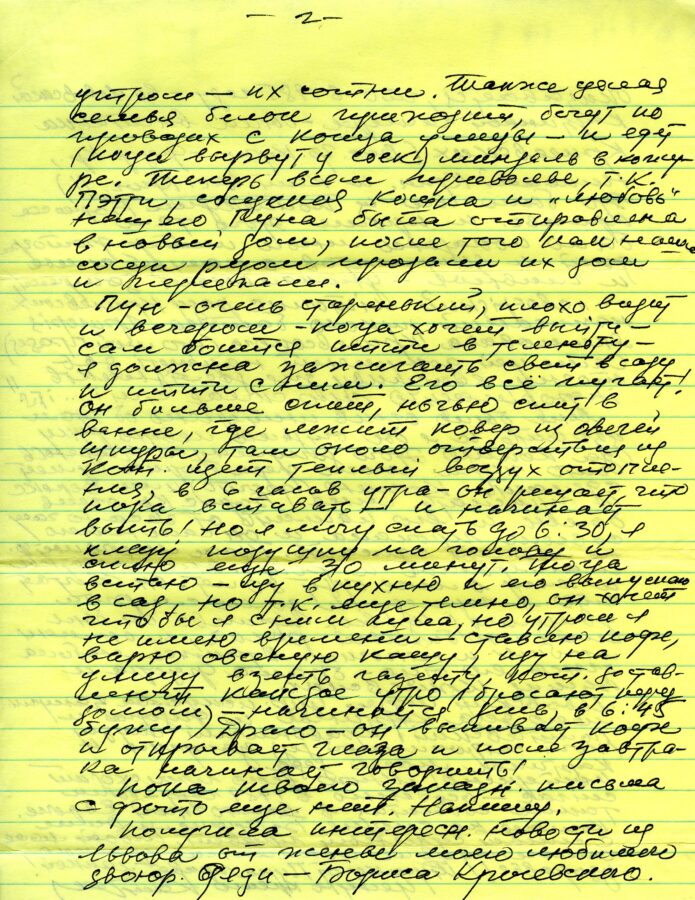 - 2 -
утром — их сотни. Также целая
семья белок приходит, бегут по
проводах с конца улицы — и едят
(когда вырвут у соек) миндаль в кожу-
ре. Теперь всем приволье, т.к.
Пэтти, соседняя кошка и "любовь"
нашего Пуна была отправлена
в новый дом, после того как наши
соседи рядом продали их дом
и переехали.
Пун - очень старенький, плохо видит
и вечером - когда хочет выйти -
сам боится идти в темноту -
я должна зажигать свет в саду
и идти с ним. Его всё пугает!
Он больше спит, ночью спит в
ванне, где лежит ковер из овечей
шкуры, там около отверстия из
кот. идет теплый воздух отопле-
ния, в 6 часов утра - он решает, что
пора вставать - и начинает
выть! Но я могу спать до 6:30, я
кладу подушку на голову и
сплю еще 30 минут. Тогда
встаю - иду в кухню и его выпускаю
в сад, но т.к. еще темно, он хочет
что бы я с ним шла, но утром я
не имею времени - ставлю кофе,
варю овсяную кашу, иду на
улицу взять газету, кот. достав-
ляют каждое утро (бросают перед
домом) - начинается день, в 6:45
бужу Драго - он выпивает кофе
и открывает глаза и после завтра-
ка начинает говорить!
Пока твоего письма
с фото еще нет. Напишу.
Получила интересн. новости из
Львова от жены моего любимого
двоюр. Феди — Бориса